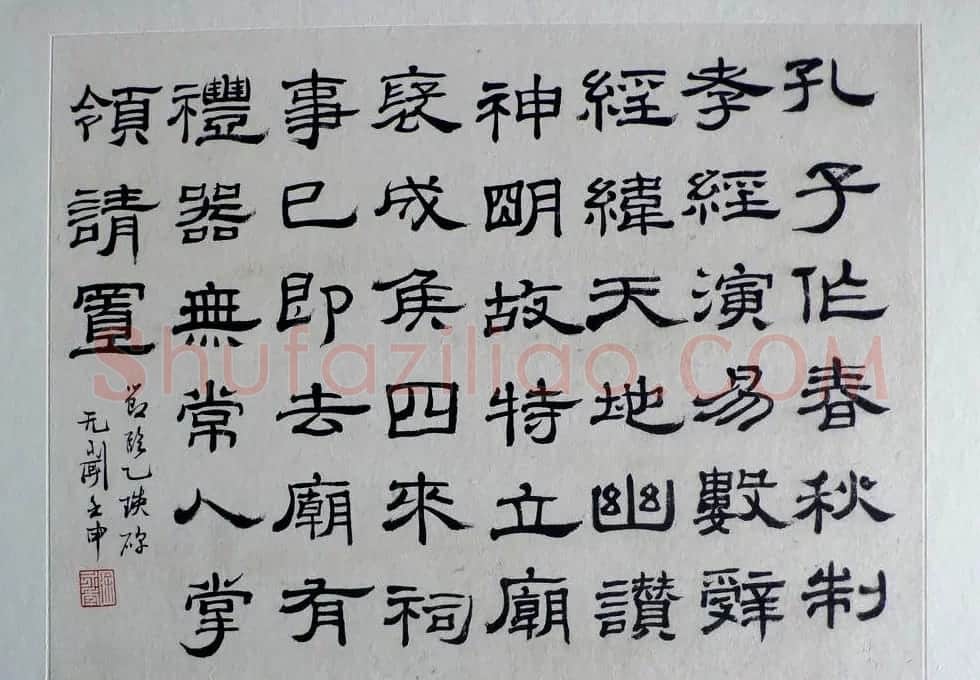 孔子作春秋制
孝經演易數辭
經緯天地幽讚
神明故特立廟
褒成侯四來祠
事已即去廟有
禮器無常人掌
領請置
節臨乙瑛碑
壬申
Shufaziliao.COM